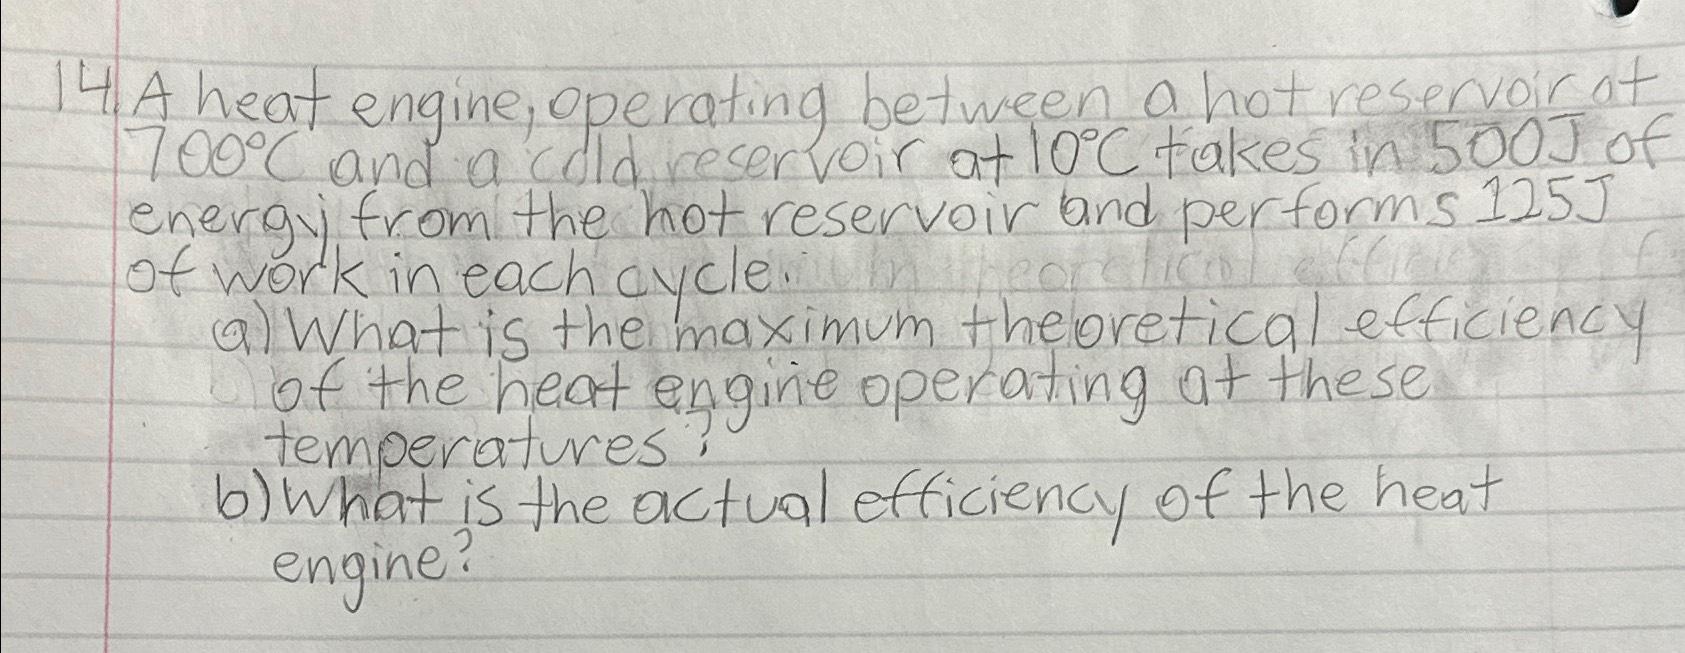 14. A heat engine, operating between a hot reservoir at
700°C and a cold reservoir at 10°C takes in 500J of
energy from the hot reservoir and performs 125J
of work in each cycle.
a) What is the maximum theoretical efficiency
of the heat engine operating at these
temperatures?
b) What is the actual efficiency of the heat
engine?